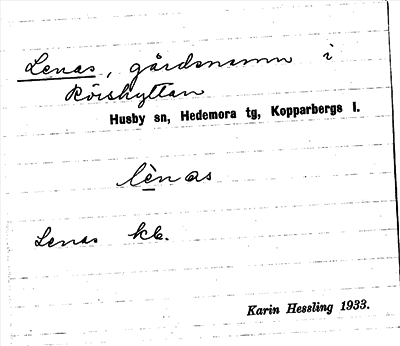 Lenas, gårdsnamn i
Röishyttan
Husby sn, Hedemora tg, Kopparbergs l.
lènas
Lenas kb.
Karin Hessling 1933.